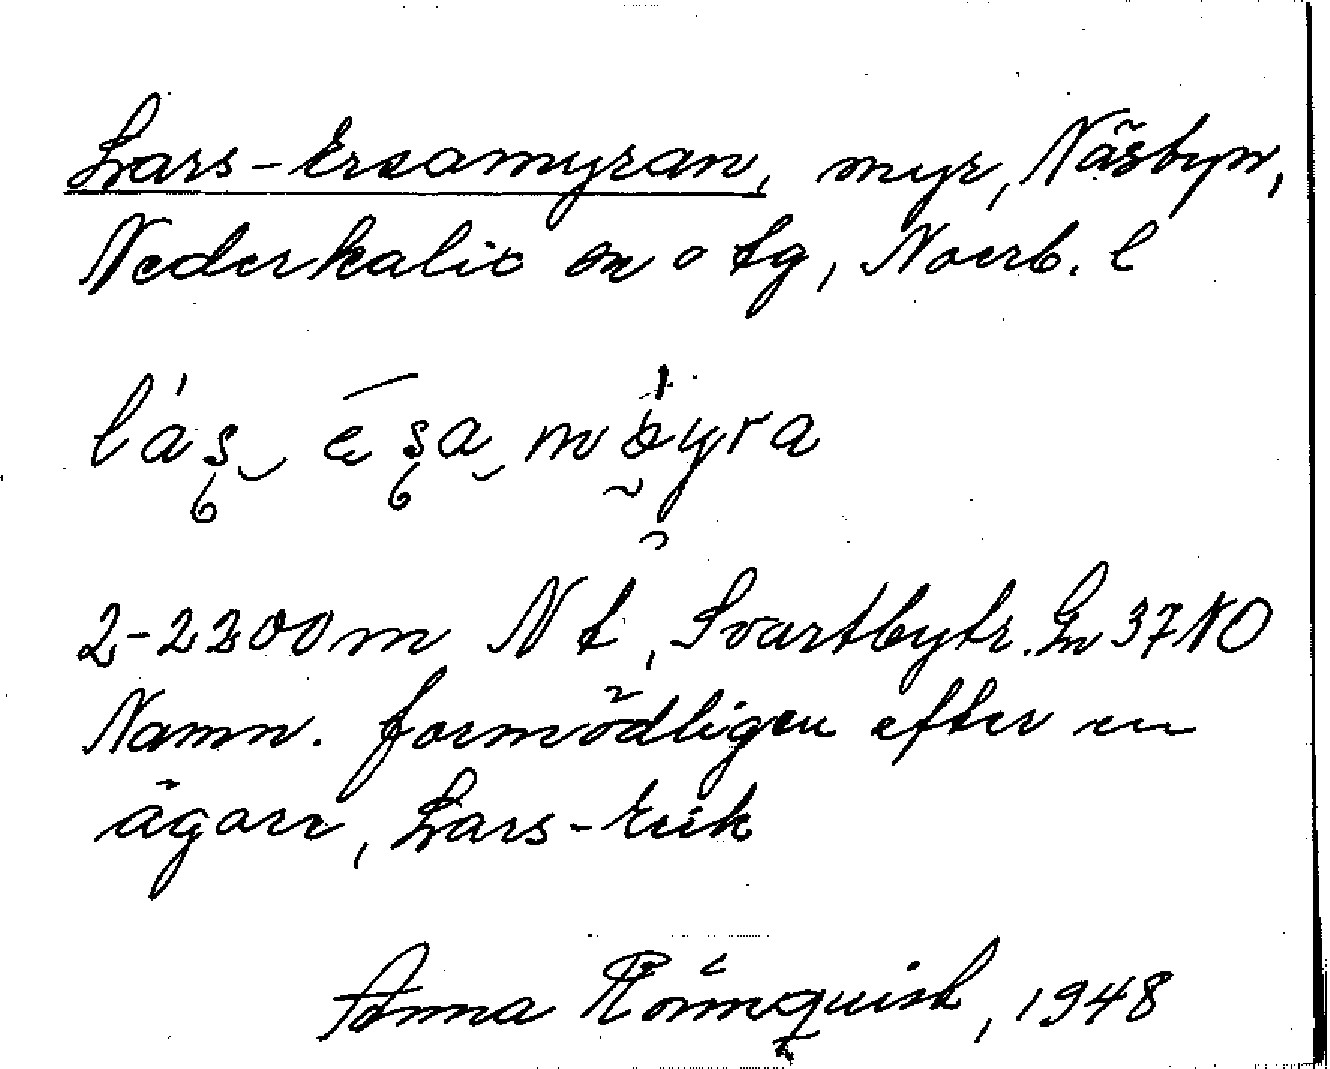 Lars-Ersamyran, myr, Näsbyn,
Nederkalix sn o tg, Norrb. l
lás ẹ̄sa möyra
2-2200 m N t, Svartbytr. Ln 37 NO
Namn. förmodligen efter en
ägare, Lars-Erik
Anna Rönnquist, 1948